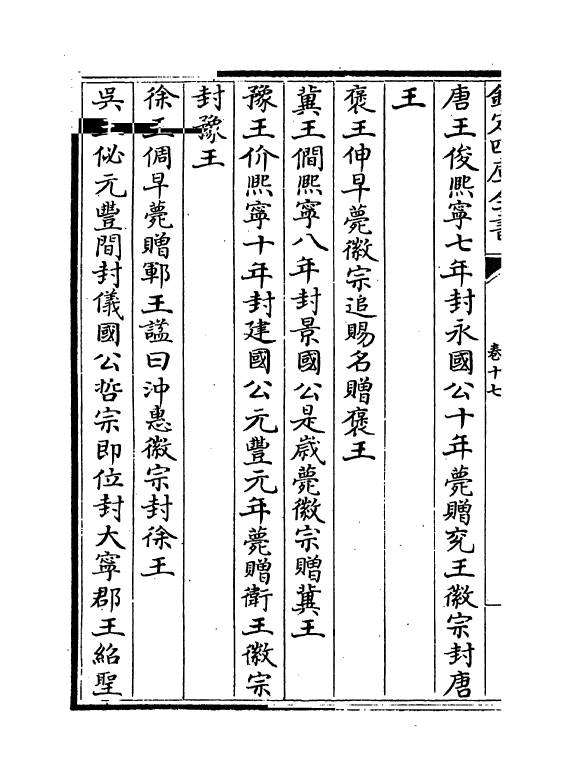 欽定四庫全書
卷十七
唐王俊熙寧七年封永國公十年薨贈兖王徽宗封唐
王
褒王伸早薨徽宗追賜名贈褒王
冀王僩熙寧八年封景國公是歲薨徽宗贈冀王
豫王价熙寧十年封建國公元豐元年薨贈衛王徽宗
封豫王
徐王倜早薨贈鄆王諡曰沖惠徽宗封徐王
吳王佖元豐間封儀國公哲宗即位封大寧郡王紹聖